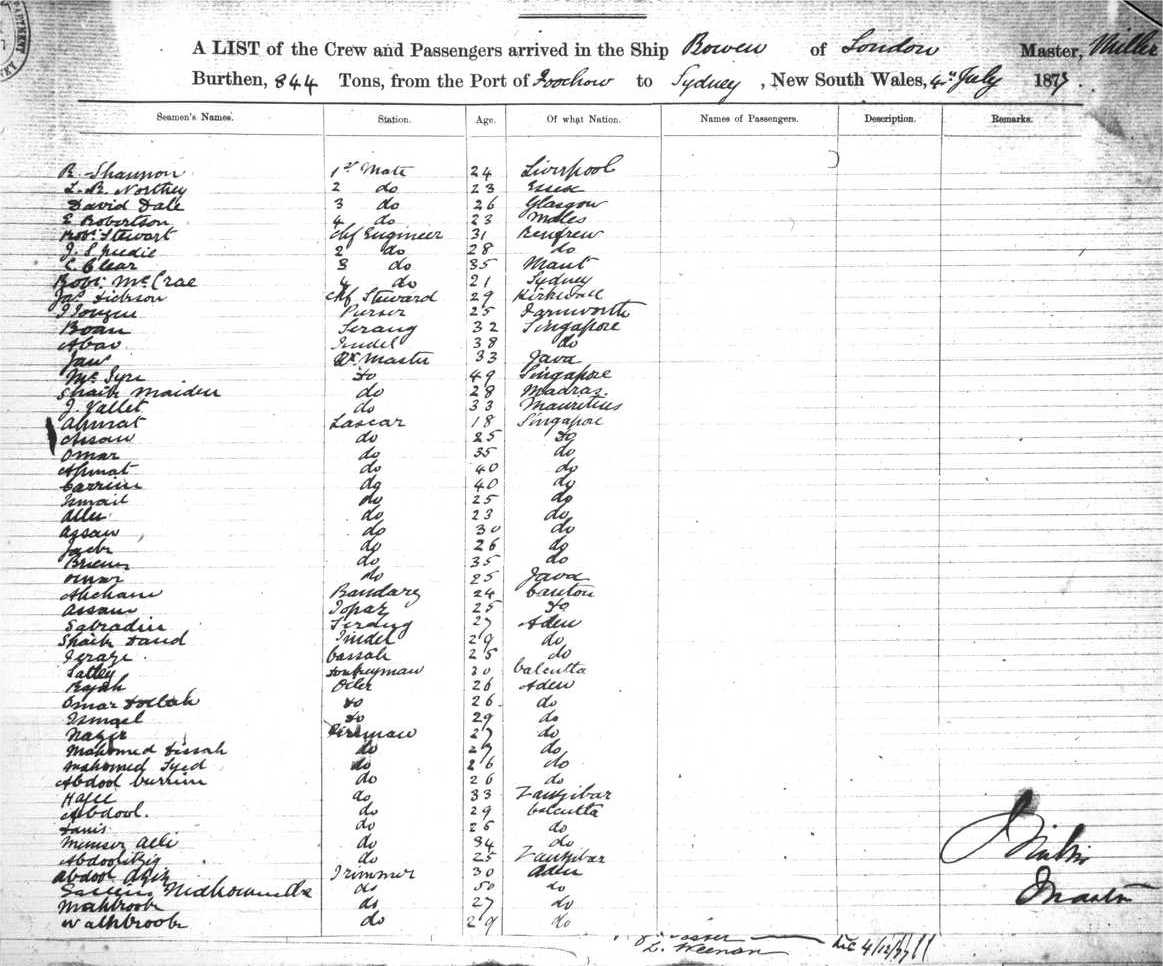 A LIST of the Crew and Passengers arrived in the Ship Bowen of London Master, Miller
Burthen, 844 Tons, from the Port of Foochow to Sydney, New South Wales, 4th July 1877.
Seamen's Names. Station. Age. Of what Nation. Names of Passengers. Description. Remarks.
R. Shannon 1st Mate 24 Liverpool
L. R. Northey 2 do 23 Essex
David Dale 3 do 26 Glasgow
E Robertson 4 do 23 Wales
Robt Stewart chf Engineer 31 Renfrew
J. S 2 do 28 do
C. Clear 3 do 35
Robt McCrae 4 do 21 Sydney
Jas Dickson chf Steward 29 Kirkwall
Purser 25
Boan Serang 32 Singapore
Abas Tindel 38 do
Jaw Qr Master 33 Java
do 49 Singapore
Shaik Maiden do 28 Madras.
J. Vallet do 33 Mauritius
Ahmat Lascar 18 Singapore
do 25 do
Omar do 35 do
Ahmat do 40 do
Carrim do 40 do
Ismail do 25 do
Allee do 23 do
Assan do 30 do
do 26 do
do 35 do
Omar do 25 Java
Bandary 24 Canton
Assam Topaz 25 do
Sabradin Serang 27 Aden
Shaik Daud Tindel 29 do
Cassab 25 do
Donkeyman 30 Calcutta
Rajah Oiler 26 Aden
Omar do 26 do
Ismael do 29 do
Fireman 27 do
Mahomed do 27 do
Mahomed Syed do 26 do
Abdool Curriem do 26 do
do 33 Zanzibar
Abdool. do 29 Calcutta
do 25 do
Alli do 34 do
do 25 Zanzibar
Abdool Aziz Trimmer 30 Aden
do 50 do
Mahbroob do 27 do
Walkbroob do 29 do
J Miller
Master
L. Weenan